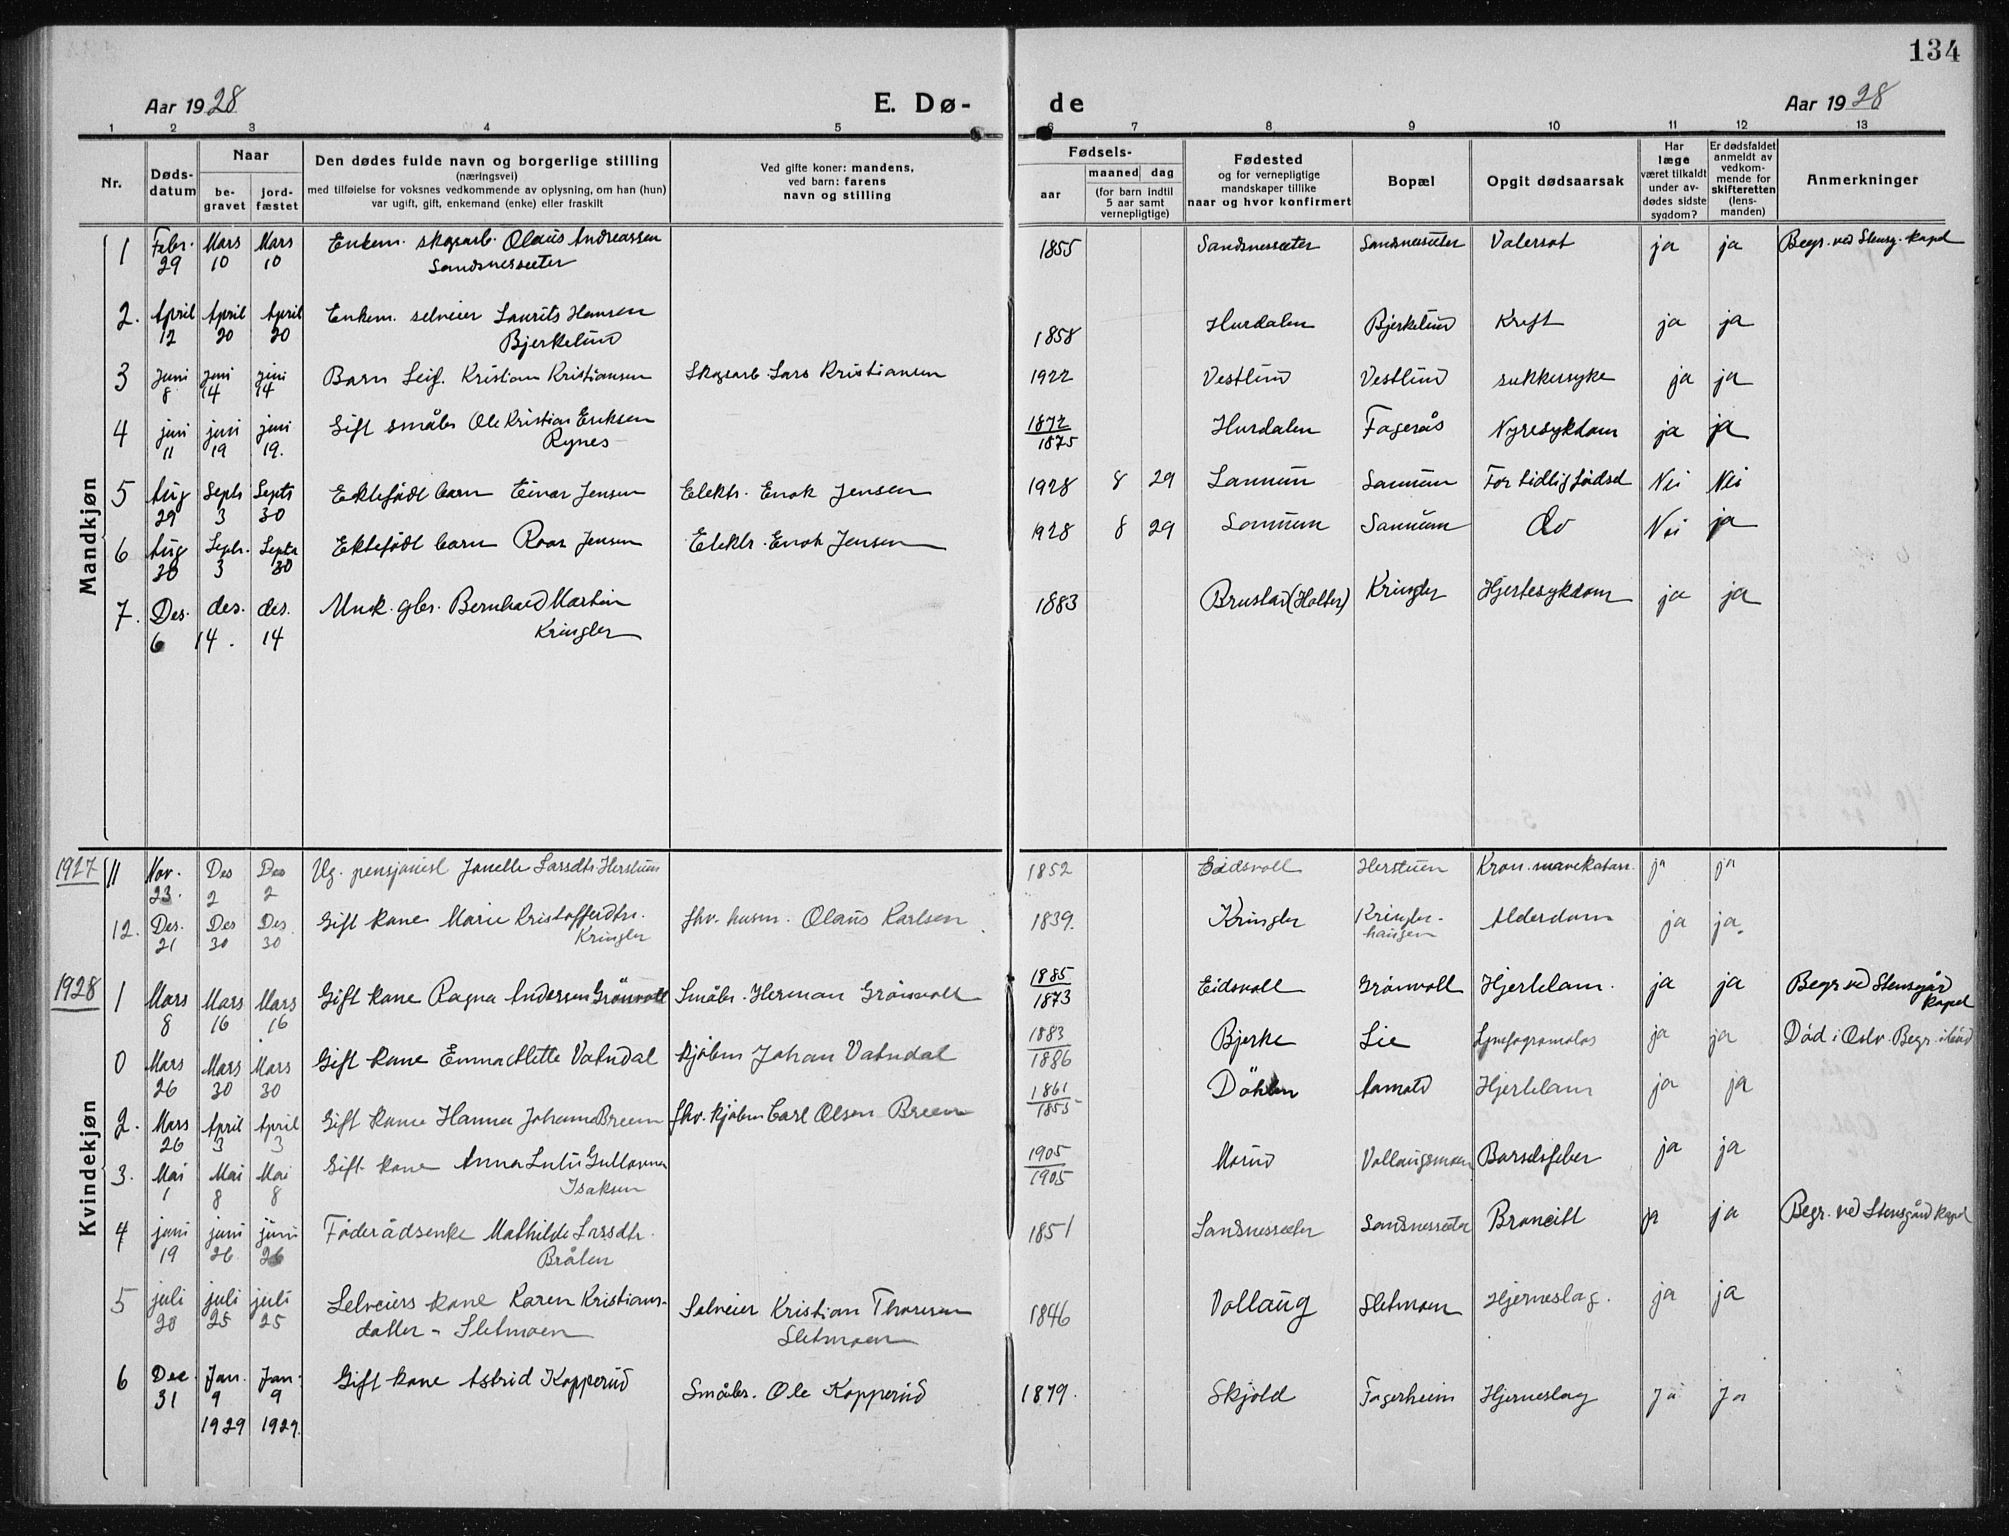 134
Aar 1928 E. Dø- de Aar 1928
1 2 3 4 5 6 7 8 9 10 11 12 13
Nr. Døds-datum Naar be-gravet jord-fæstet Den dødes fulde navn og borgerlige stilling (næringsvei) med tilføielse for voksnes vedkommende av oplysning, om han (hun) var ugift, gift, enkemand (enke) eller fraskilt Ved gifte koner: mandens, ved barn: farens navn og stilling Fødsels- aar maaned dag (for barn indtil 5 aar samt vernepligtige) Fødested og for vernepligtige mandskaper tillike naar og hvor konfirmert Bopæl Opgit dødsaarsak Har læge været tilkaldt under av-dødes sidste sygdom? Er dødsfaldet anmeldt av vedkom-mende for skifteretten (lens-manden) Anmerkninger
Mandkjøn
1 Febr. 29 Mars 10 Mars 10 Enkem. skogsarb. Olaus Andreassen Sandsnesseter 1855 Sandsnesseter Sandsnesseter ja ja Begr. ved Stensg. kapel
2. April 12 April 20 April 20 Enkem. selveier Laurits Hansen Bjerkelund 1858 Hurdalen Bjerkelund Kreft ja ja
3 Juni 8 juni 14 juni 14 Barn Leif Kristian Kristiansen Skogsarb. Lars Kristiansen 1922 Vestlund Vestlund sukkersyke ja ja
4 juni 11 juni 19 juni 19. Gift småbr Ole Kristian Eriksen Rynes 1872 1875 Hurdalen Fagerås Nyresykdom ja ja
5 Aug 29 Septr 3 Septr 30 Ektefødt barn Einar Jensen Elektr. Enok Jensen 1928 8 29 Sannum Sannum For tidlig fødsel Nei Nei
6 Aug 30 Septr. 3 Septr 30 Ektefødt barn Roar Jensen Elektr. Enok Jensen 1928 8 29 Sannum Sannum Do Nei ja
7. Des. 6 des. 14. des. 14 Unk. gbr. Bernhard Martin Kringler 1883 Brustad (Holter) Kringler Hjertesykdom ja ja
Kvindekjøn
1927 11 Nov. 23. Des 2 Des 2 Ug. pensjonist Janette Larsdtr Herstuen 1852 Eidsvoll Herstuen Kron. mavekatarr. ja ja
12. Des. 21 Des 30 Des 30 Gift kone Marie Kristoffersdtr. Kringler fhv. husm. Olaus Karlsen 1839. Kringler Kringler-haugen Alderdom ja ja.
1928 1 Mars 8 Mars 16 Mars 16 Gift kone Ragna Andersen Grönvoll Småbr. Herman Grönvoll 1885 1873 Eidsvoll Grönvoll Hjertelam. ja ja Begr ved Stensgård kapel
0 Mars 26 Mars 30 Mars 30 Gift kone Emma Mette Vatndal kjøbm Johan Vatndal 1883 1886 Bjerke Lie ja ja Død i Oslo. Begr.
2. Mars 26 April 3 April 3 Gift kone Hanna Johanna Breen fhv. kjøbm Carl Olsen Breen 1861 1855 Döhlen Hjertelam ja ja
3. Mai 1 Mai 8 Mai 8 Gift kone Anna Isaksen 1905 1905 Morud Vollaugsmoen Barselfeber ja ja
4 juni 19 juni 26 juni 26 Föderådsenke Mathilde Larsdtr. Bråten 1851 Sandsnesseter Sandsnesseter Broncitt ja ja Begr. ved Stensgård kapel
5 juli 20 juli 25 juli 25 Selveiers kone Karen Kristians-datter - Sletmoen Selveier Kristian Thoresen Sletmoen 1846 Vollaug Sletmoen Hjerneslag. ja ja
6 Dec. 31 Jan. 9 1929 Jan. 9 1929. Gift kone Astrid Kopperud Småbr. Ole Kopperud 1879. Skjold Fagerheim Hjerneslag Ja Ja